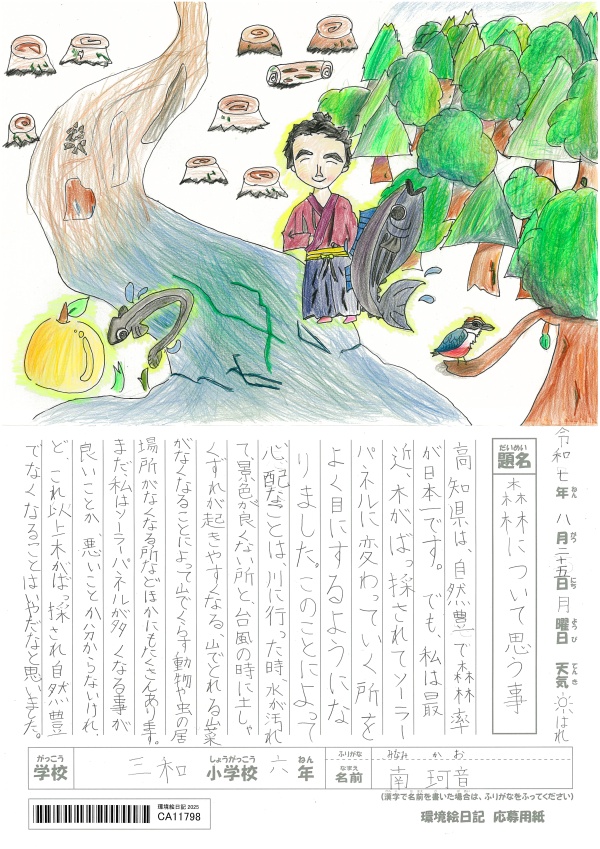 令和七年八月二十五日月曜日 天気 はれ
ねん がつ にち ようび てんき
だいめい
題名
森林について思う事
高知県は、自然豊で森林率
が日本一です。でも、私は最
近、木がばっ採されてソーラー
パネルに変わっていく所を
よく目にするようにな
りました。このことによって
心配なことは、川に行った時、水が汚れ
て景色が良くない所と、台風の時に土しゃ
くずれが起きやすくなる、山でとれる山菜
がなくなることによって山でくらす動物や虫の居
場所がなくなる所などほかにもたくさんあります。
まだ私はソーラーパネルが多くなる事が
良いことか、悪いことか分からないけれ
ど、これ以上木がばっ採され自然豊
でなくなることはいやだなと思いました。
がっこう しょうがっこう ねん ふりがな みなみ かお
学校 三和 小学校 六 年 なまえ 名前 南 珂音
(漢字で名前を書いた場合は、ふりがなをふってください)
環境絵日記 2025
CA11798
環境絵日記 応募用紙